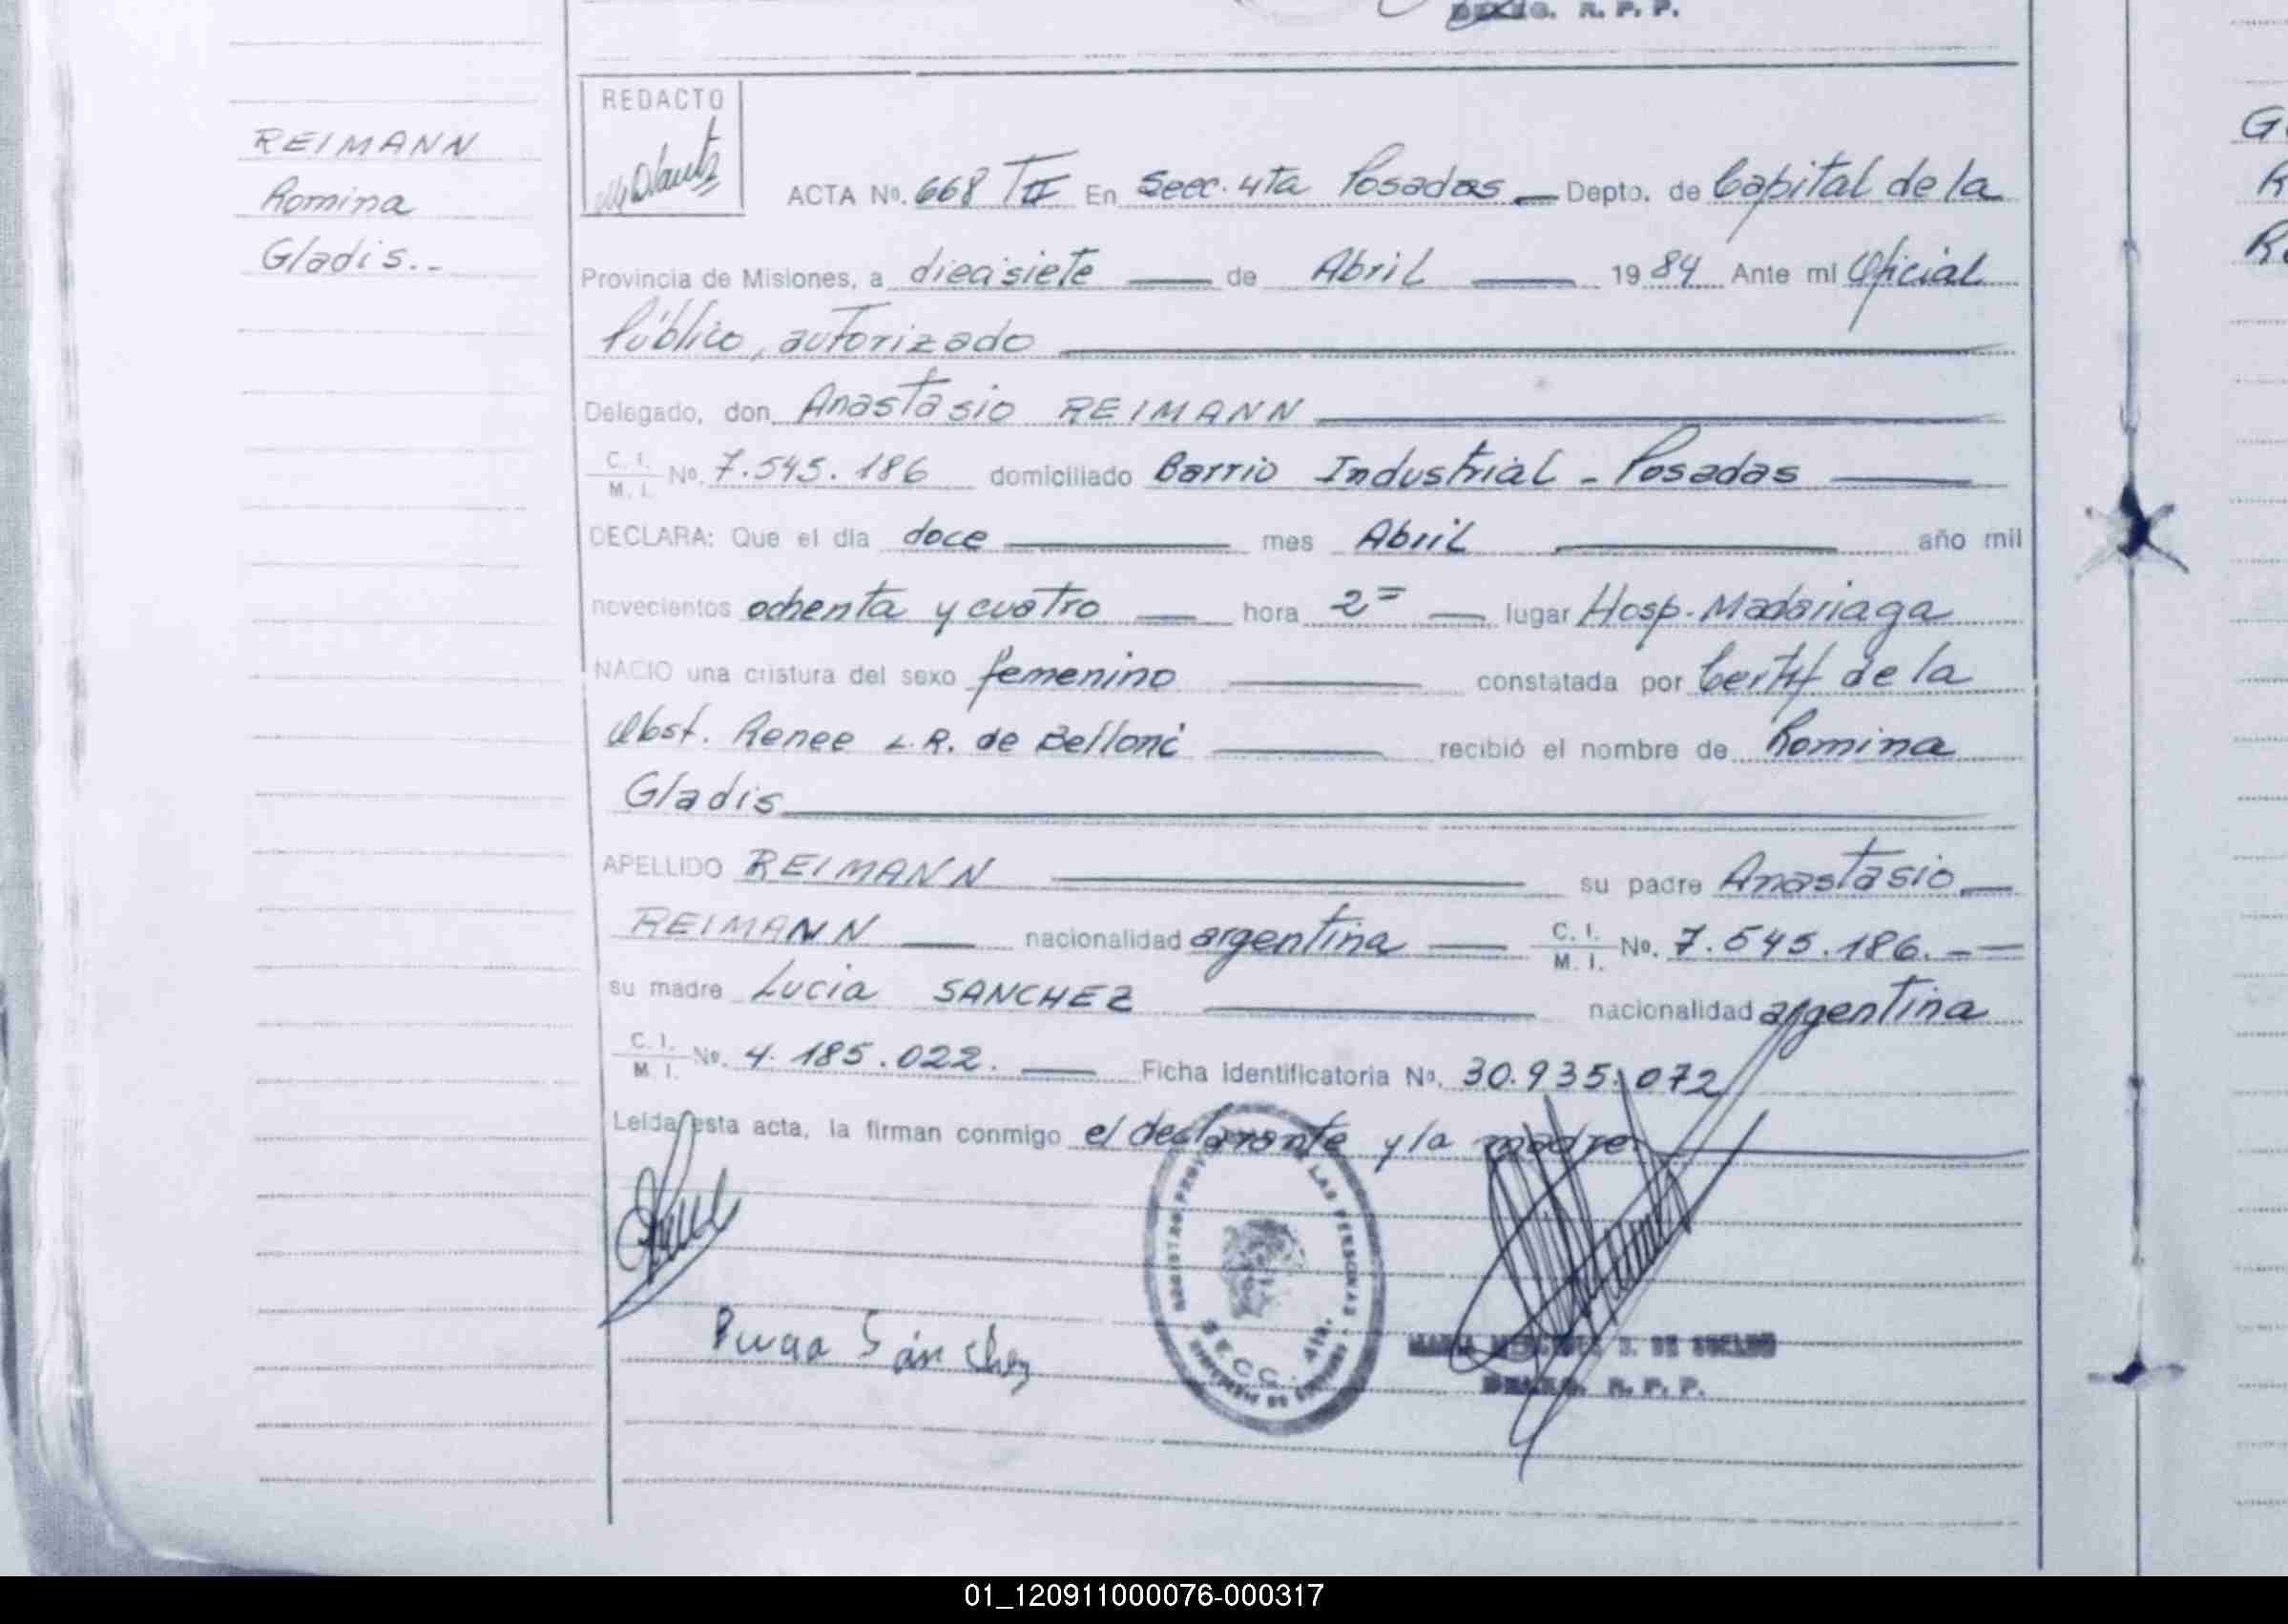 DELEG. R. P. P.
REIMANN
Romina
Gladis.-
REDACTO
ACTA Nº. 668 TII En Secc. 4ta Posadas — Depto. de Capital de la
Provincia de Misiones, a diecisiete — de Abril — 1984 Ante mi Oficial
Público, autorizado
Delegado, don Anastasio REIMANN
C. I. M. I. Nº. 7.545.186 domiciliado Barrio Industrial - Posadas
DECLARA: Que el día doce — mes Abril — año mil
novecientos ochenta y cuatro — hora 2= — lugar Hosp. Madariaga
NACIO una criatura del sexo femenino — constatada por Certif de la
Obst. Renee L.R. de Belloni — recibió el nombre de Romina
Gladis
APELLIDO REIMANN — su padre Anastasio —
REIMANN — nacionalidad argentina — C. I. M. I. Nº. 7.545.186. --
su madre Lucia SANCHEZ — nacionalidad argentina
C. I. M. I. Nº. 4.185.022. — Ficha Identificatoria Nº. 30.935.072
Leída esta acta, la firman conmigo el declarante y la madre
Sánchez
LAS PERSONAS
SECC. 4ta.
DELEG. R. P. P.
01_120911000076-000317